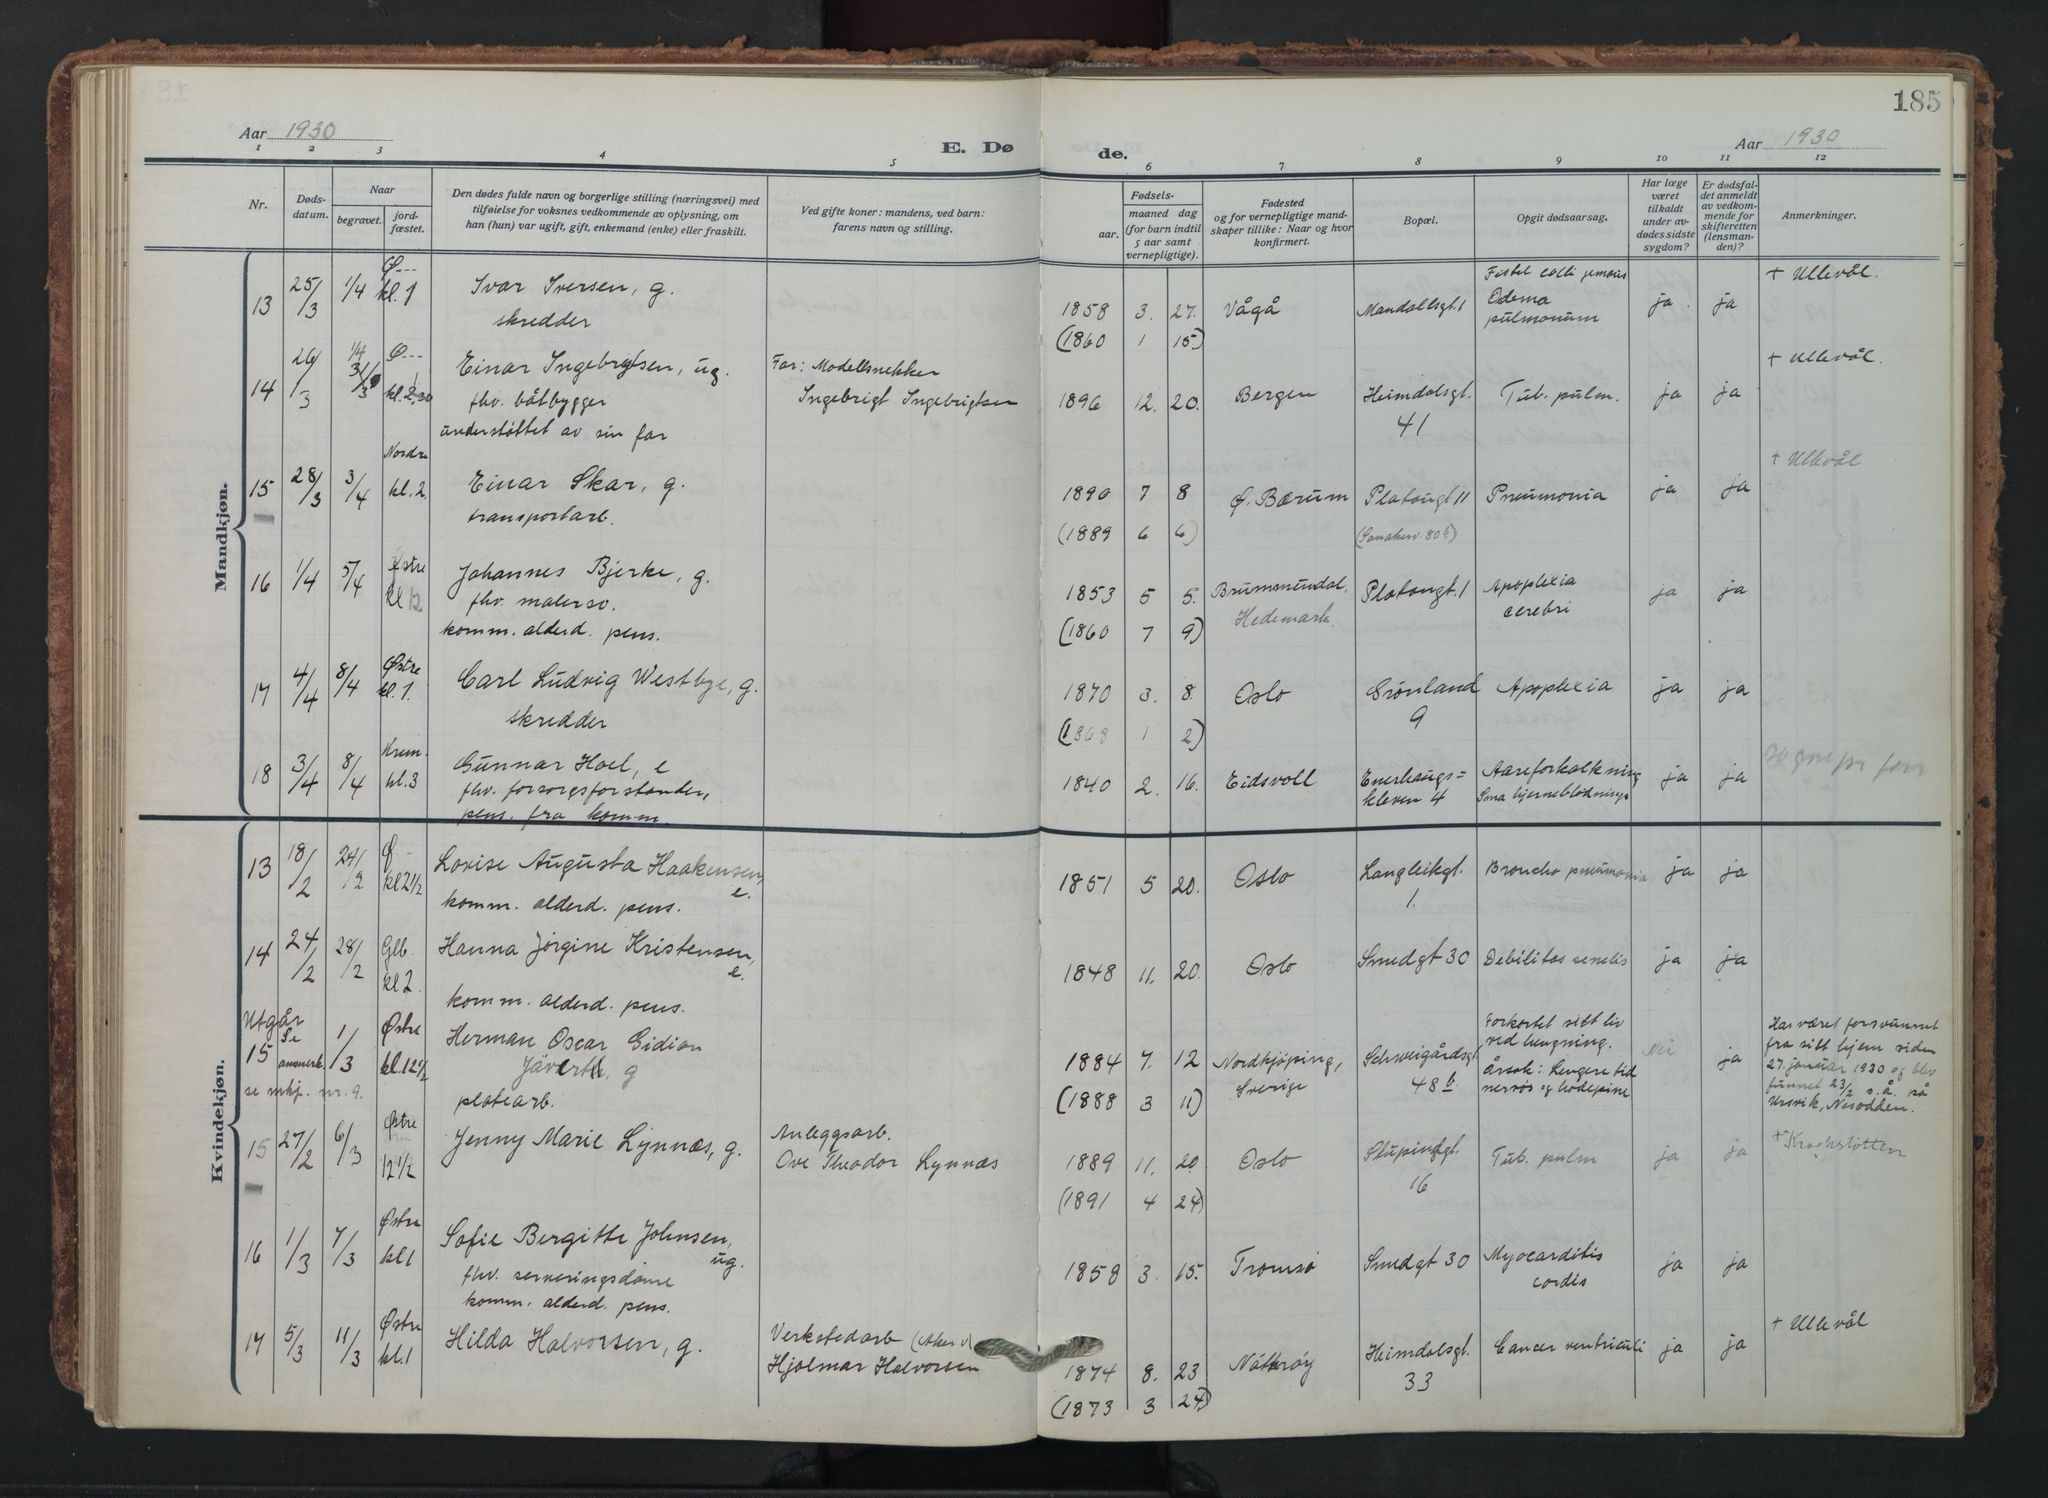 185
Aar 1930
E. Dø
de.
Aar 1930
1 2 3 4 5 6 7 8 9 10 11 12
Nr.
Døds-
datum.
Naar
begravet.
jord-
fæstet.
Den dødes fulde navn og borgerlige stilling (næringsvei) med
tilføielse for voksnes vedkommende av oplysning, om
han (hun) var ugift, gift, enkemand (enke) eller fraskilt.
Ved gifte koner: mandens, ved barn:
farens navn og stilling.
Fødsels-
aar.
maaned dag
(for barn indtil
5 aar samt
vernepligtige).
Fødested
og for vernepligtige mand-
skaper tillike: Naar og hvor
konfirmert.
Bopæl.
Opgit dødsaarsag.
Har læge
været
tilkaldt
under av-
dødes sidste
sygdom?
Er dødsfal-
det anmeldt
av vedkom-
mende for
skifteretten
(lensman-
den)?
Anmerkninger.
Mandkjøn.
13 25/3 1/4 Ø--- kl. 1 Ivar Iversen, g.
skredder
1858 3. 27. Vågå Mandallsgt. 1
Odema
pulmonum
ja ja + Ullevål.
(1860 1 15)
14 26/3 1/4 31/3 Ø--- kl. 2.30 Einar Ingebrigtsen, ug.
fhv. båtbygger
understøttet av sin far
Far: Modellsnekker
Ingebrigt Ingebrigtsen
1896 12. 20. Bergen Heimdalsgt.
41
Tub. pulm. ja ja + Ullevål.
15 28/3 3/4 Nordre kl. 2. Einar Skar, g.
transportarb.
1890 7 8 Ø. Bærum Platougt 11 Pneumonia ja ja + Ullevål
(1889 6 6) (Sanakerv. 80b)
16 1/4 5/4 Østre kl 12 Johannes Bjerke, g.
fhv. malersv.
komm. alderd. pens.
1853 5 5. Brummundal,
Hedemark.
Platougt. 1 Apoplexia
cerebri
ja ja
(1860 7 9)
17 4/4 8/4 Østre kl. 1. Carl Ludvig Westbye, g.
skredder
1870 3. 8. Oslo Grønland
9
Apoplexia ja ja
(1868 1 2)
18 3/4 8/4 Krem. kl. 3 Gunnar Hoel, e
fhv. forsorgsforstander,
pens. fra komm.
1840 2. 16. Eidsvoll Enerhaugs=
kleven 4
Aareforkalkning
Små hjerneblødninger
ja ja
Kvindekjøn.
13 18/2 24/2 Ø-- kl 2 1/2 Lovise Augusta Haakensen,
e.
komm. alderd. pens.
1851 5 20. Oslo Langleikgt.
1.
Broncho pneumonia ja ja
14 24/2 28/2 Glb. kl 2. Hanna Jørgine Kristensen,
e.
komm. alderd. pens.
1848 11. 20. Oslo Smedgt 30 Debilitas senelis ja ja
Utgår
15 Se anmerk. 1/3 Østre kl. 12 1/2 Herman Oscar Gidion
Jäverth. g
platearb.
se mkj. nr. 9.
1884 7. 12 Nordkjøping,
Sverige
Schweigårdsgt.
48b.
Forkortet sitt liv
ved hengning.
Årsak: Lengere tid
nervøs og hodepine
Nei ja
Har været forsvunnet
fra sitt hjem siden
27. januar 1930 og blev
funnet 23/2 s.å. på
Ursvik, Nesodden.
(1888 3 11)
15 27/2 6/3 Østre 12 1/2 Jenny Marie Lynnæs, g.
Anleggsarb.
Ove Theodor Lynnæs
1889 11. 20. Oslo Stupinsgt.
16
Tub. pulm ja ja + Krogstøtten
(1891 4 24)
16 1/3 7/3 Østre kl 1 Sofie Bergitte Johnsen,
ug.
fhv. serveringsdame
komm. alderd. pens.
1858 3. 15. Tromsø Smedgt 30 Myocarditis
cordis
ja ja
17 5/3 11/3 Østre kl. 1 Hilda Halvorsen, g.
Verkstedarb (Aker v)
Hjalmar Halvorsen
1874 8. 23 Nøtterøy Heimdalsgt.
33
Cancer ventriculi ja ja + Ullevål
(1873 3 24)